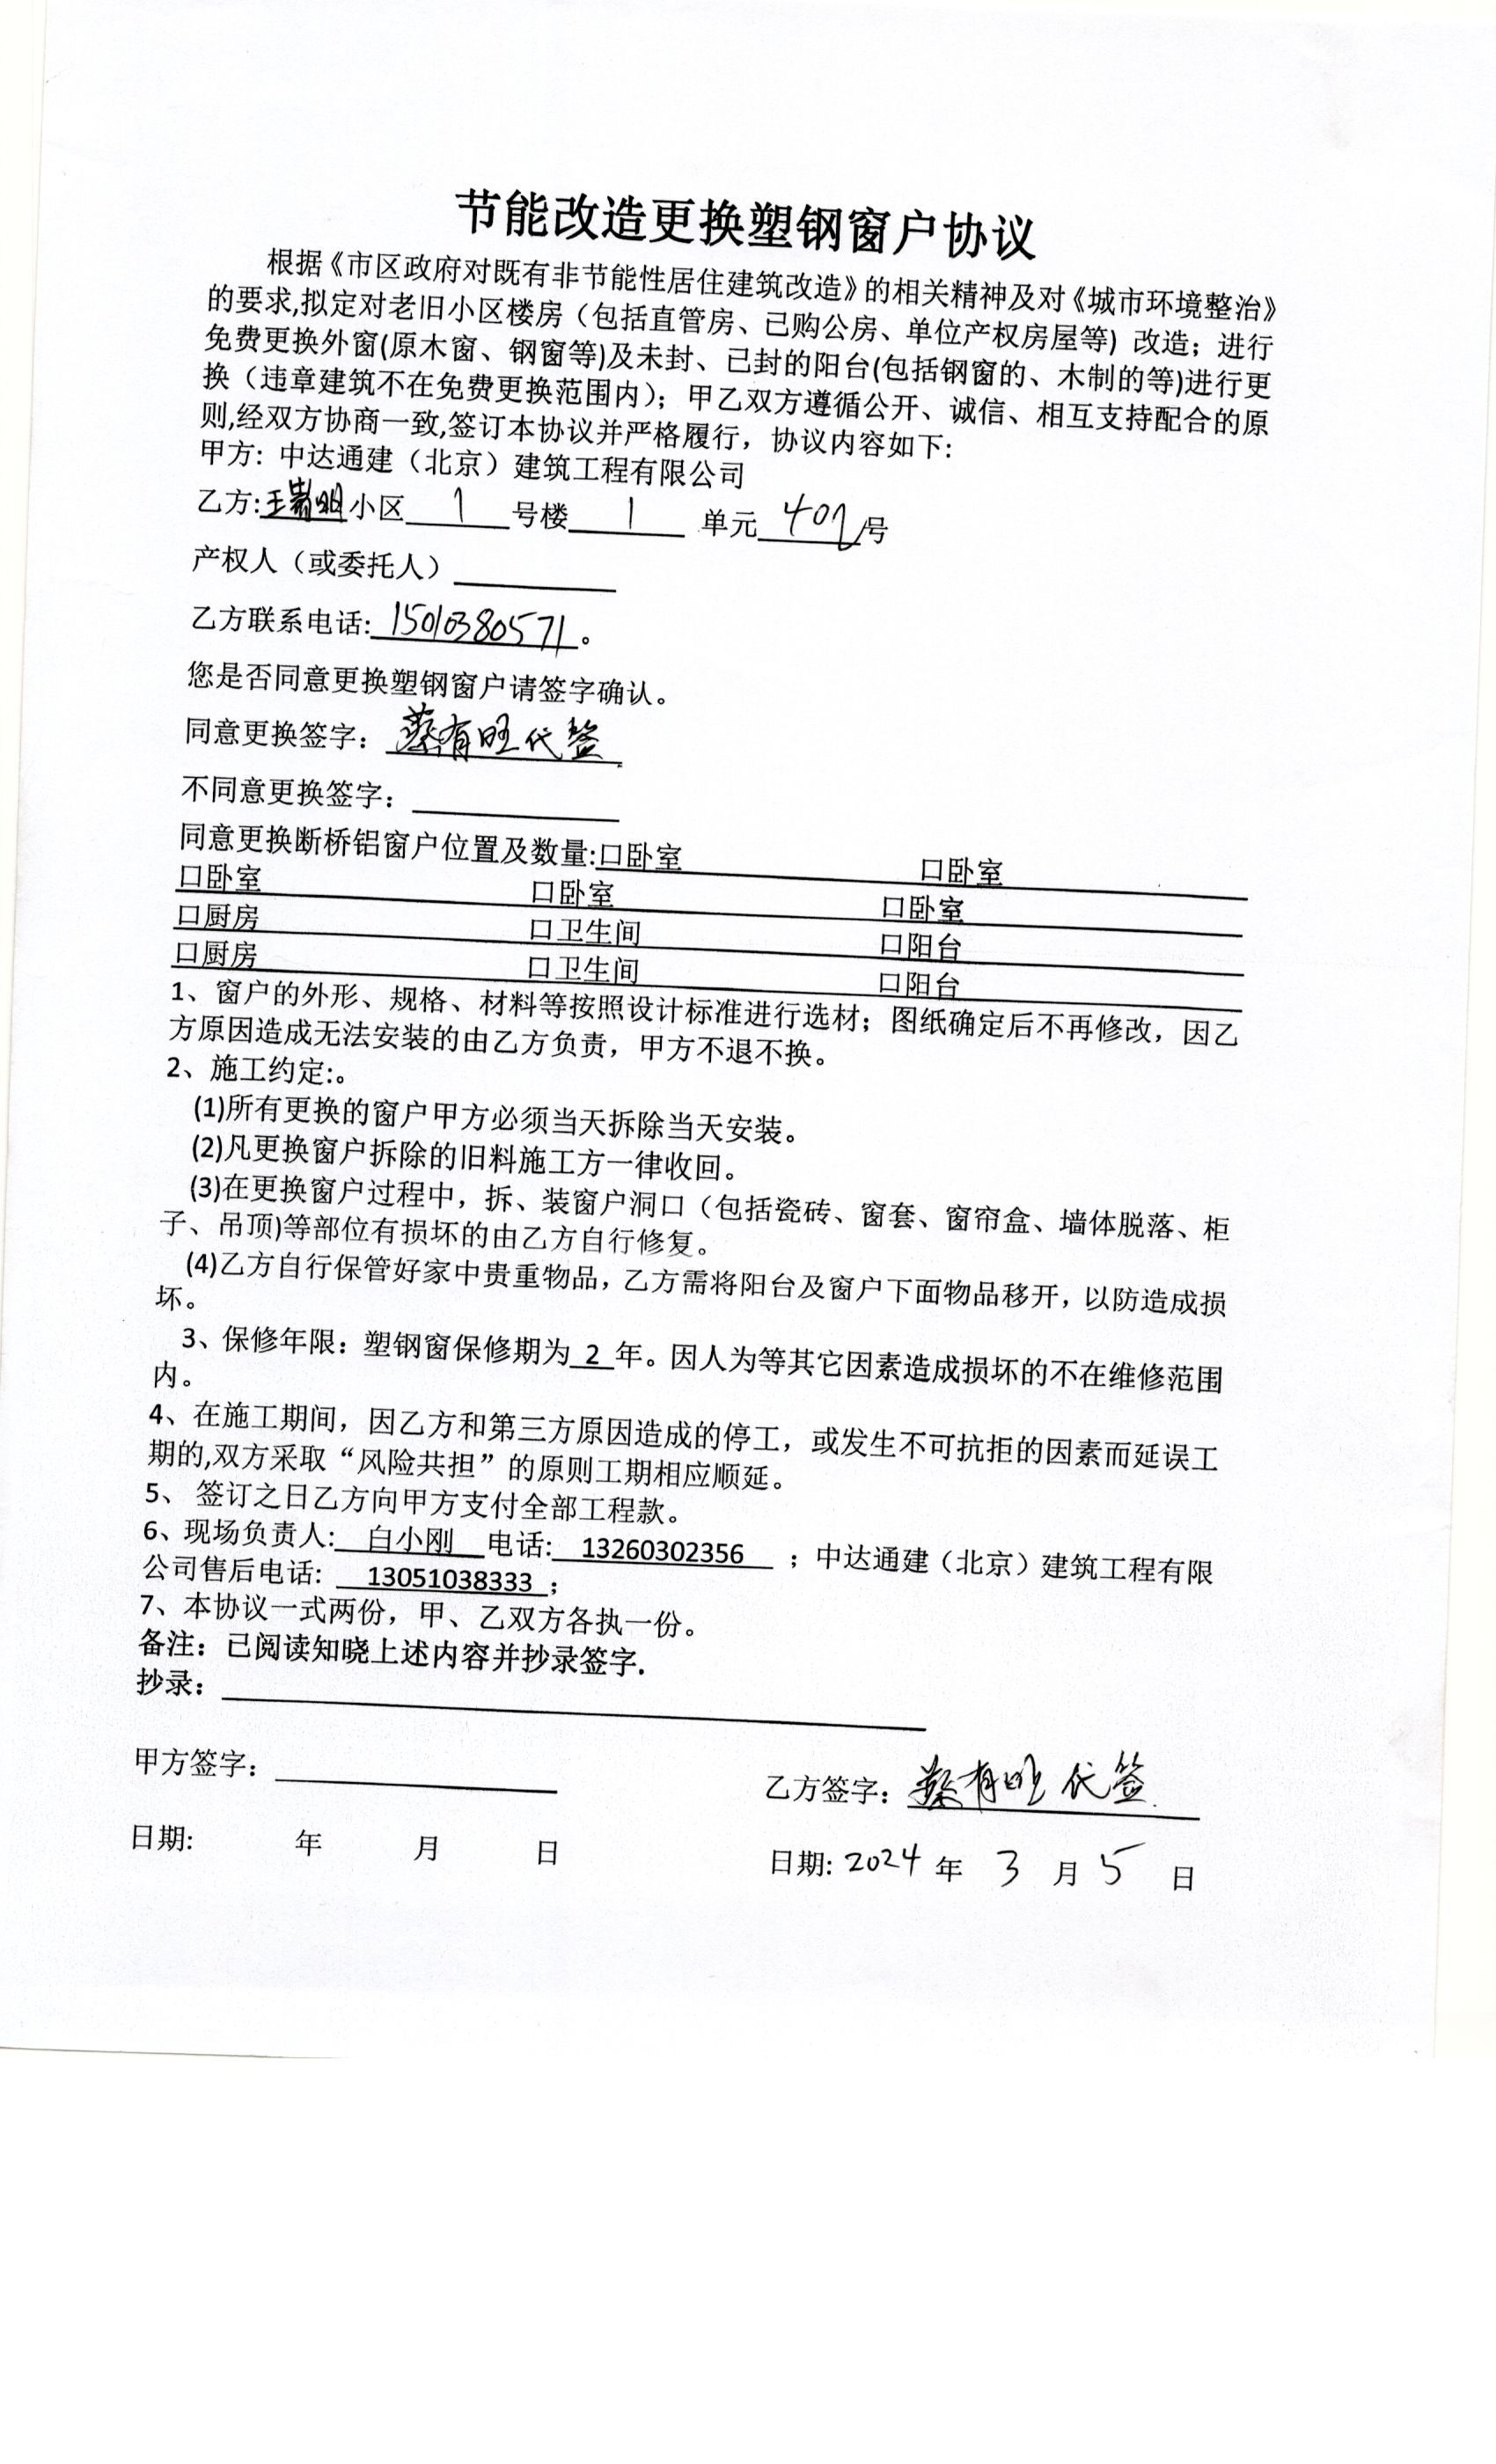 节能改造更换塑钢窗户协议
根据《市区政府对既有非节能性居住建筑改造》的相关精神及对《城市环境整治》
的要求,拟定对老旧小区楼房（包括直管房、已购公房、单位产权房屋等）改造；进行
免费更换外窗(原木窗、钢窗等)及未封、已封的阳台(包括钢窗的、木制的等)进行更
换（违章建筑不在免费更换范围内）；甲乙双方遵循公开、诚信、相互支持配合的原
则,经双方协商一致,签订本协议并严格履行，协议内容如下:
甲方: 中达通建（北京）建筑工程有限公司
乙方: 小区 1 号楼 1 单元 402 号
产权人（或委托人）
乙方联系电话: 15010380571 。
您是否同意更换塑钢窗户请签字确认。
同意更换签字: 蔡有旺代签
不同意更换签字:
同意更换断桥铝窗户位置及数量:口卧室 口卧室
口卧室 口卧室 口卧室
口厨房 口卫生间 口阳台
口厨房 口卫生间 口阳台
1、窗户的外形、规格、材料等按照设计标准进行选材；图纸确定后不再修改，因乙
方原因造成无法安装的由乙方负责，甲方不退不换。
2、施工约定:。
(1)所有更换的窗户甲方必须当天拆除当天安装。
(2)凡更换窗户拆除的旧料施工方一律收回。
(3)在更换窗户过程中，拆、装窗户洞口（包括瓷砖、窗套、窗帘盒、墙体脱落、柜
子、吊顶)等部位有损坏的由乙方自行修复。
(4)乙方自行保管好家中贵重物品，乙方需将阳台及窗户下面物品移开，以防造成损
坏。
3、保修年限：塑钢窗保修期为 2 年。因人为等其它因素造成损坏的不在维修范围
内。
4、在施工期间，因乙方和第三方原因造成的停工，或发生不可抗拒的因素而延误工
期的,双方采取“风险共担”的原则工期相应顺延。
5、 签订之日乙方向甲方支付全部工程款。
6、现场负责人: 白小刚 电话: 13260302356 ；中达通建（北京）建筑工程有限
公司售后电话: 13051038333 ；
7、本协议一式两份，甲、乙双方各执一份。
备注：已阅读知晓上述内容并抄录签字.
抄录：
甲方签字: 乙方签字: 蔡有旺 代签
日期: 年 月 日 日期: 2024 年 3 月 5 日